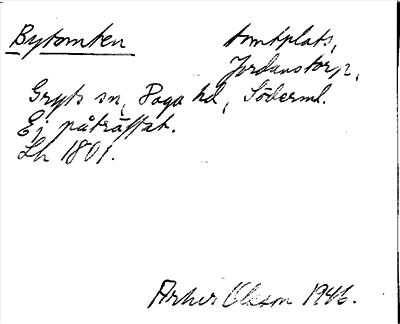 Bytomten tomtplats,
Jordanstorp,
Gryts sn, Daga hd, Söderml.
Ej påträffat.
Lh 1801.
Arher Olsson 1946.